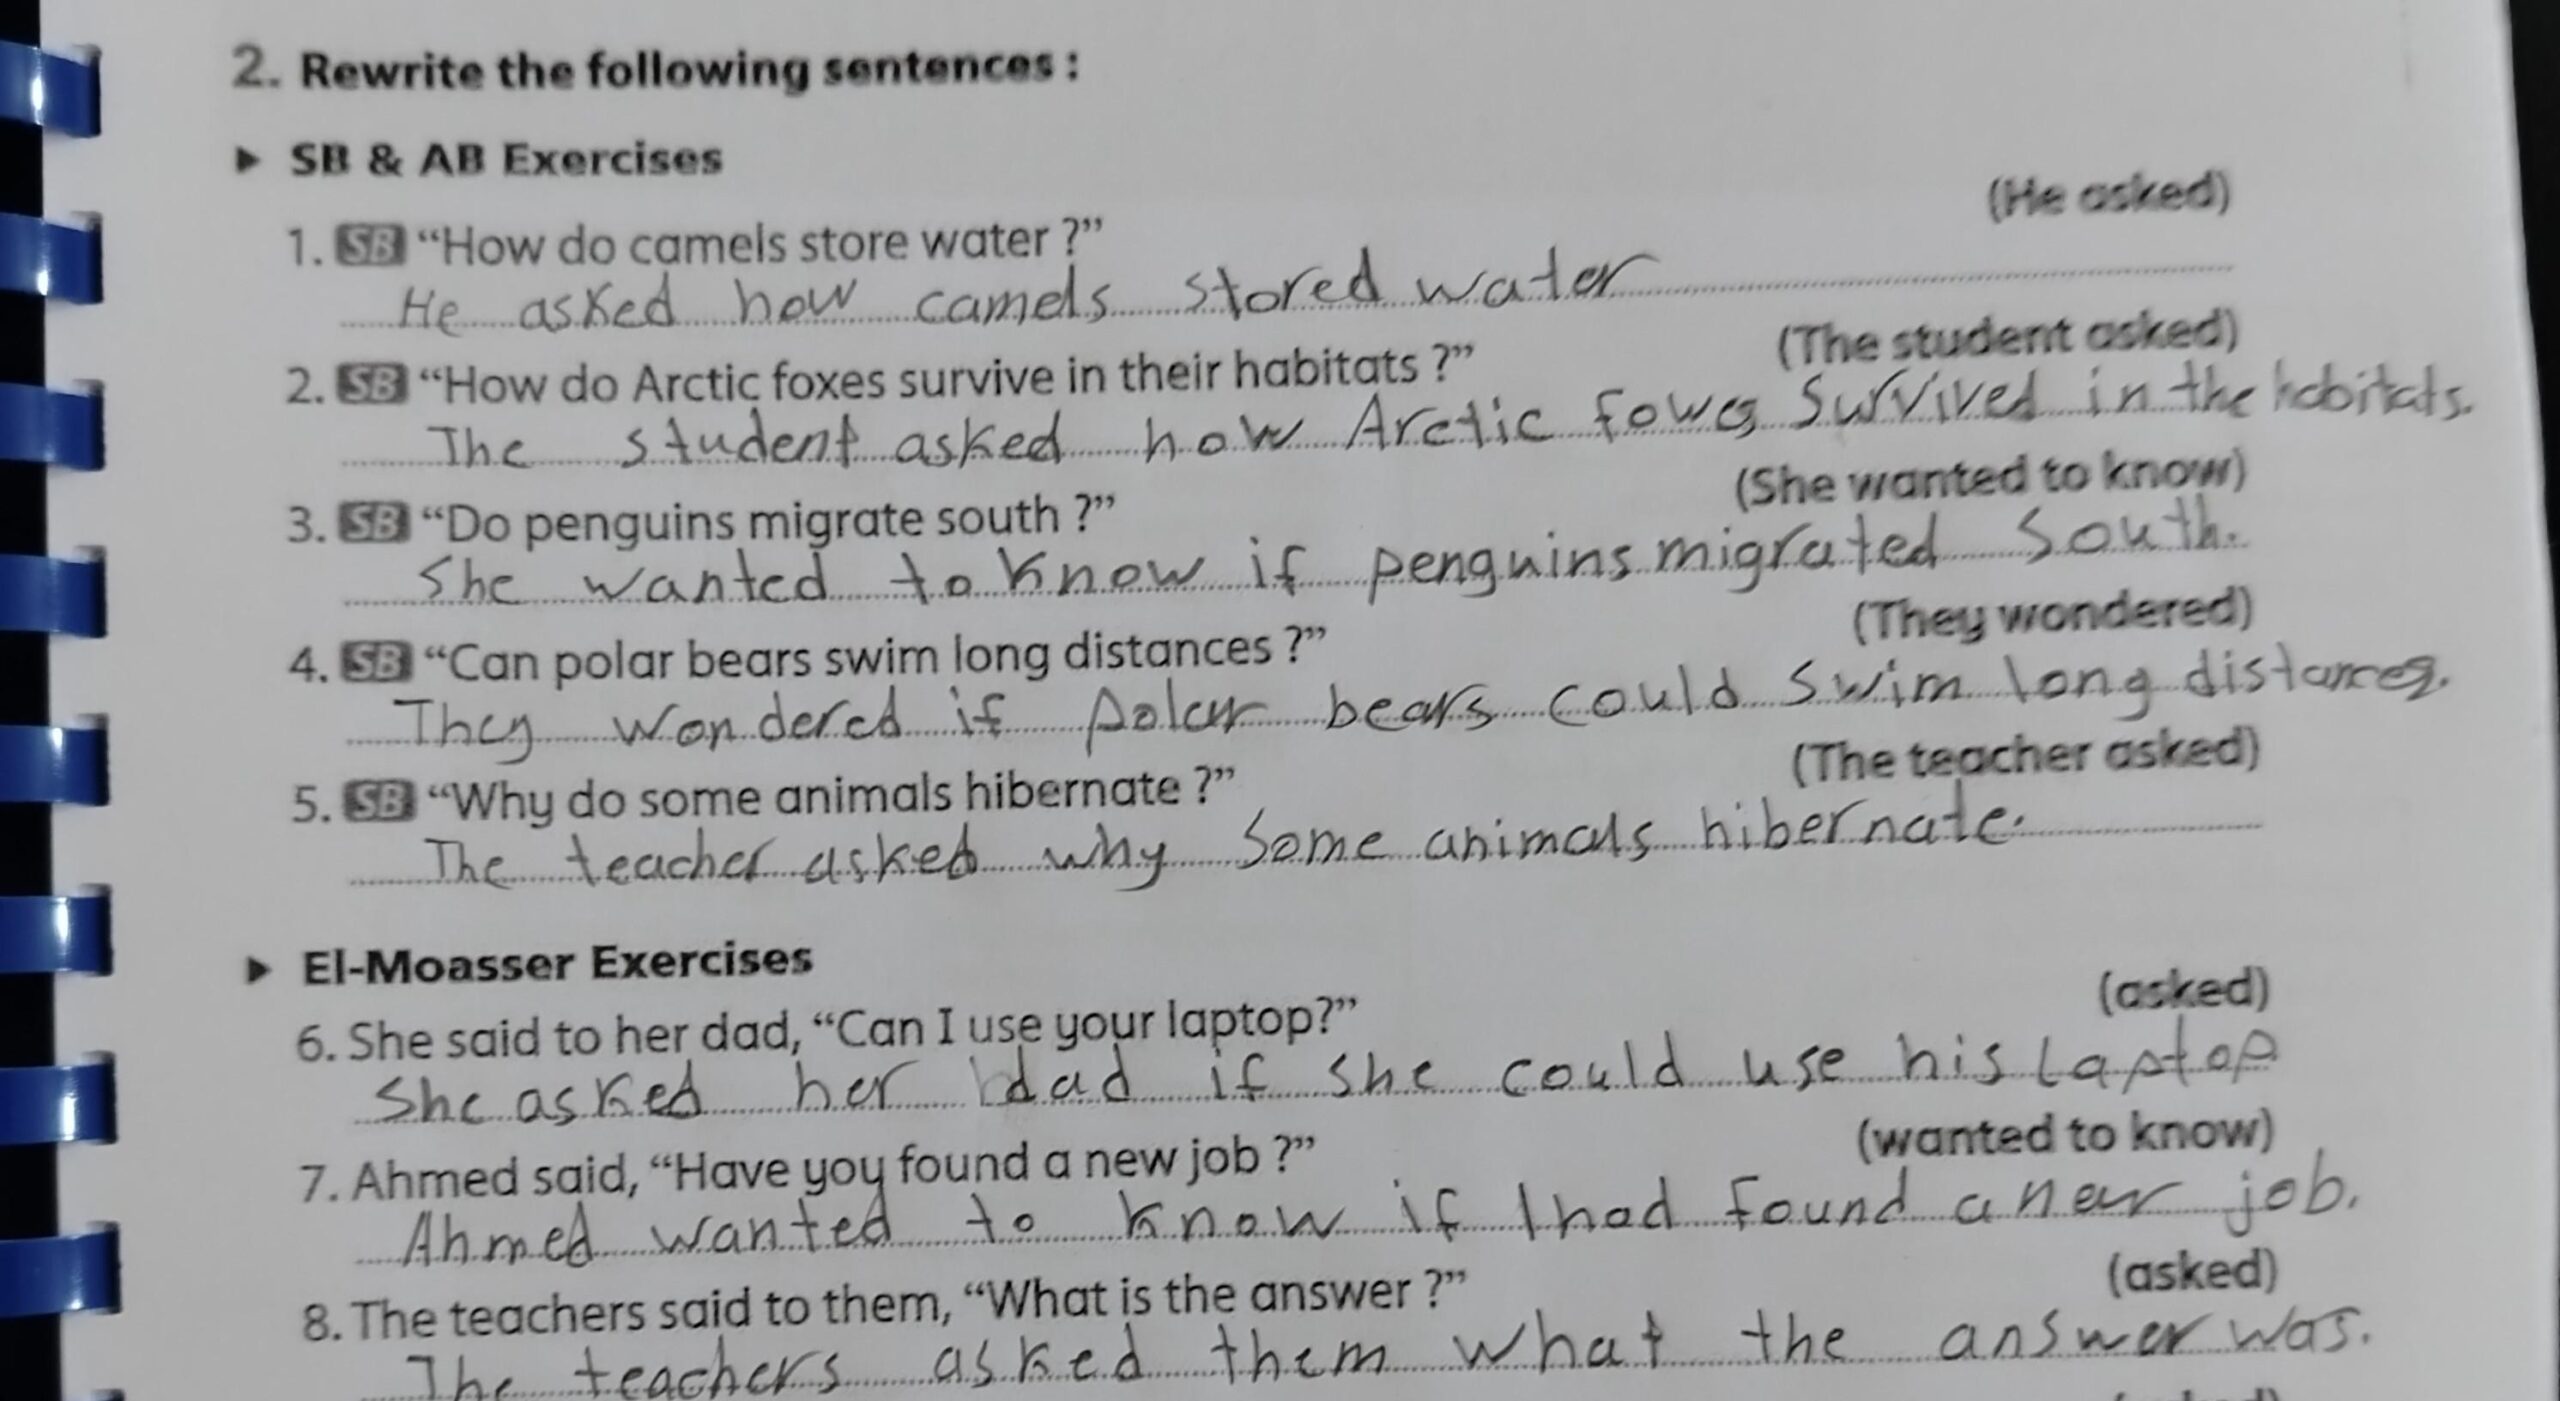 2. Rewrite the following sentences :
▶ SB & AB Exercises
(He asked)
1. SB “How do camels store water ?”
He asked how camels stored water
(The student asked)
2. SB “How do Arctic foxes survive in their habitats ?”
The student asked how Arctic survived in the habitats.
(She wanted to know)
3. SB “Do penguins migrate south ?”
She wanted to know if penguins migrated south.
(They wondered)
4. SB “Can polar bears swim long distances ?”
They wondered if polar bears could swim long distances.
(The teacher asked)
5. SB “Why do some animals hibernate ?”
The teacher asked why some animals hibernate.
▶ El-Moasser Exercises
(asked)
6. She said to her dad, “Can I use your laptop?”
She asked her dad if she could use his laptop
(wanted to know)
7. Ahmed said, “Have you found a new job ?”
Ahmed wanted to know if I had found a new job.
(asked)
8. The teachers said to them, “What is the answer ?”
The teachers asked them what the answer was.